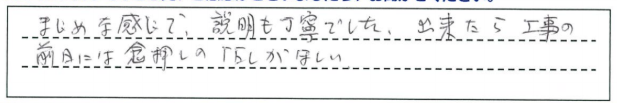 まじめな感じで、説明も丁寧でした、出来たら工事の
前日には念押しのTELがほしい